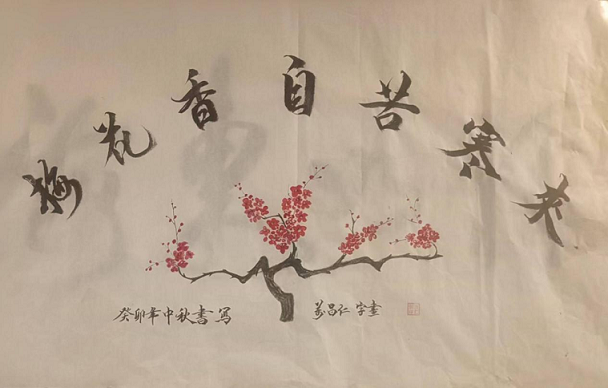 梅花香自苦寒来
癸卯年中秋書寫
萬昌仁 字畫